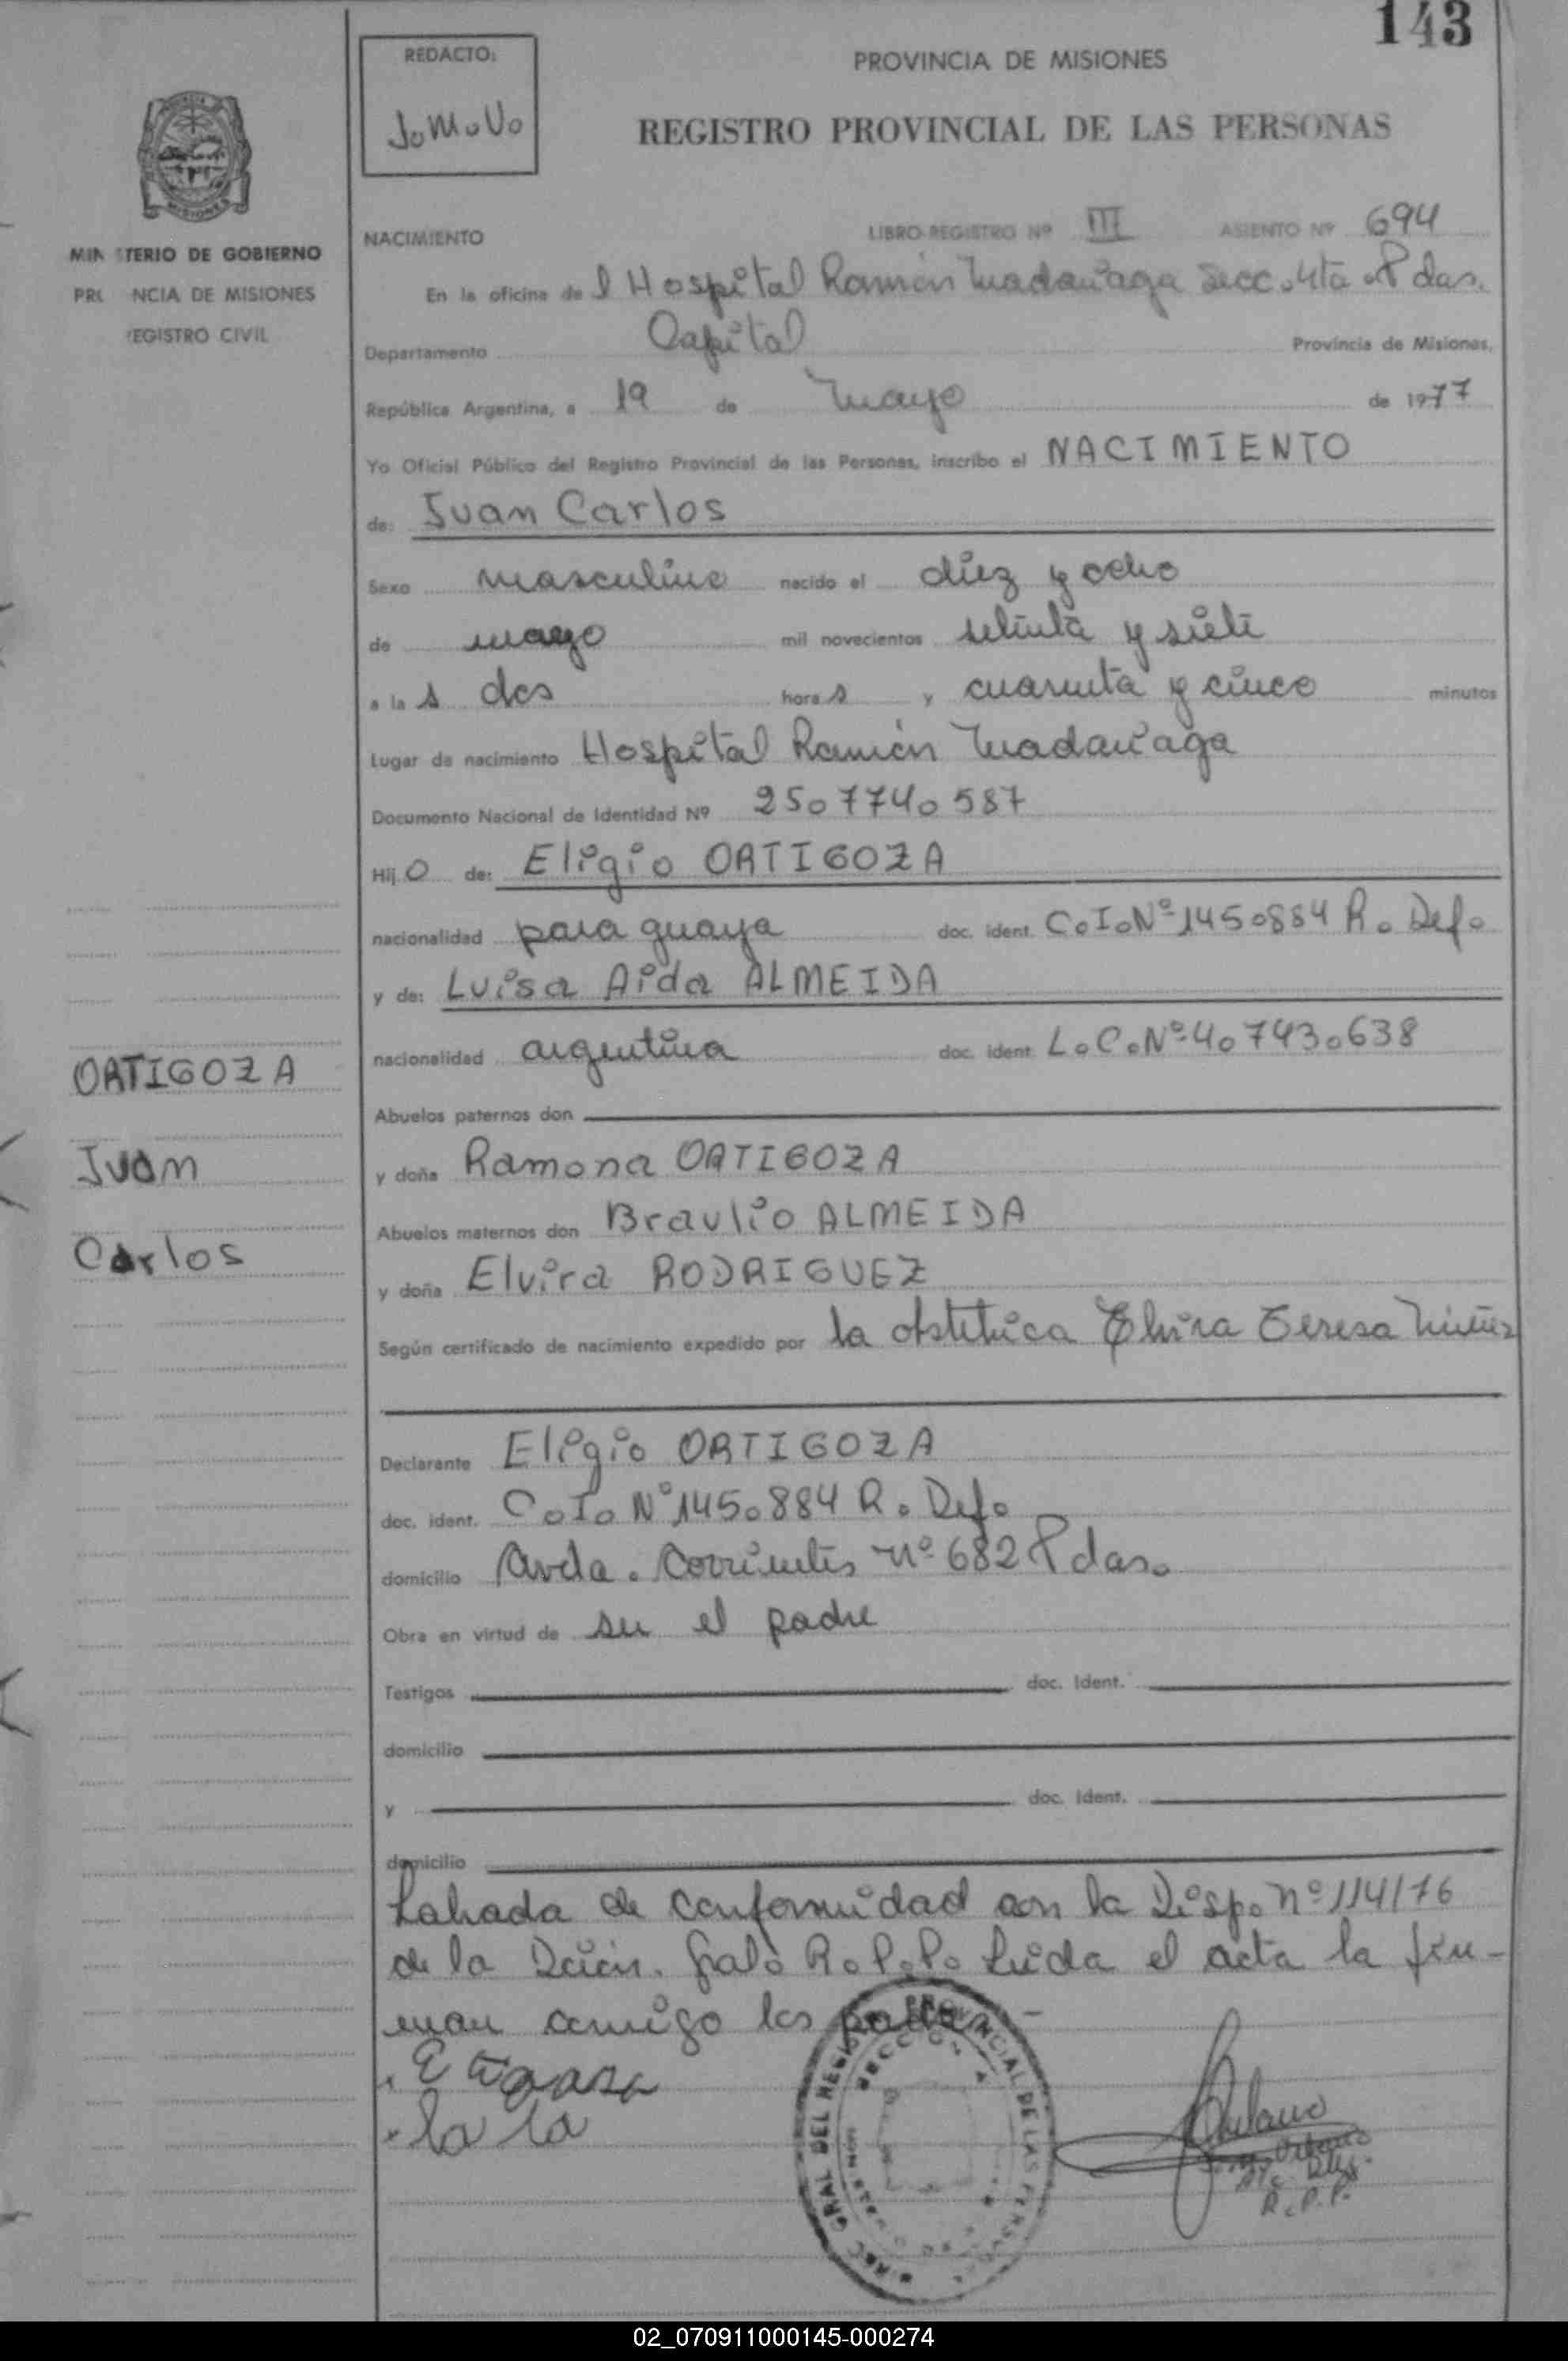 143
REDACTO:
JoMoVo
PROVINCIA DE MISIONES
REGISTRO PROVINCIAL DE LAS PERSONAS
MIN STERIO DE GOBIERNO
PRO NCIA DE MISIONES
REGISTRO CIVIL
NACIMIENTO LIBRO-REGISTRO Nº III ASIENTO Nº 694
En la oficina del Hospital Ramón Madariaga Secc. 4ta. Pdas.
Departamento Capital Provincia de Misiones,
República Argentina, a 19 de Mayo de 1977
Yo Oficial Público del Registro Provincial de las Personas, inscribo el NACIMIENTO
de: Juan Carlos
Sexo masculino nacido el diez y ocho
de mayo mil novecientos setenta y siete
a las dos horas y cuarenta y cinco minutos
Lugar de nacimiento Hospital Ramón Madariaga
Documento Nacional de Identidad Nº 25o774o587
Hijo de: Eligio ORTIGOZA
nacionalidad paraguaya doc. ident. CoIoNº 145o884 R. Defo
y de: Luisa Aida ALMEIDA
nacionalidad argentina doc. ident. LoCoNº 4o743o638
Abuelos paternos don
y doña Ramona ORTIGOZA
Abuelos maternos don Braulio ALMEIDA
y doña Elvira RODRIGUEZ
Según certificado de nacimiento expedido por la obstetrica Elvira Teresa Nuñez
Declarante Eligio ORTIGOZA
doc. ident. CoIo Nº 145o884 R. Defo
domicilio Avda. Corrientes nº 682 Pdaso
Obra en virtud de ser el padre
Testigos doc. Ident.
domicilio
y doc. Ident.
domicilio
Labrada de conformidad con la Dispo nº 114/76
de la Dción. Gralo R.P.Po Leída el acta la fir-
man conmigo los padres -
ORTIGOZA
Juan
Carlos
DIREC. GRAL. DEL REGISTRO PROVINCIAL DE LAS PERSONAS
R.P.P.
02_070911000145-000274